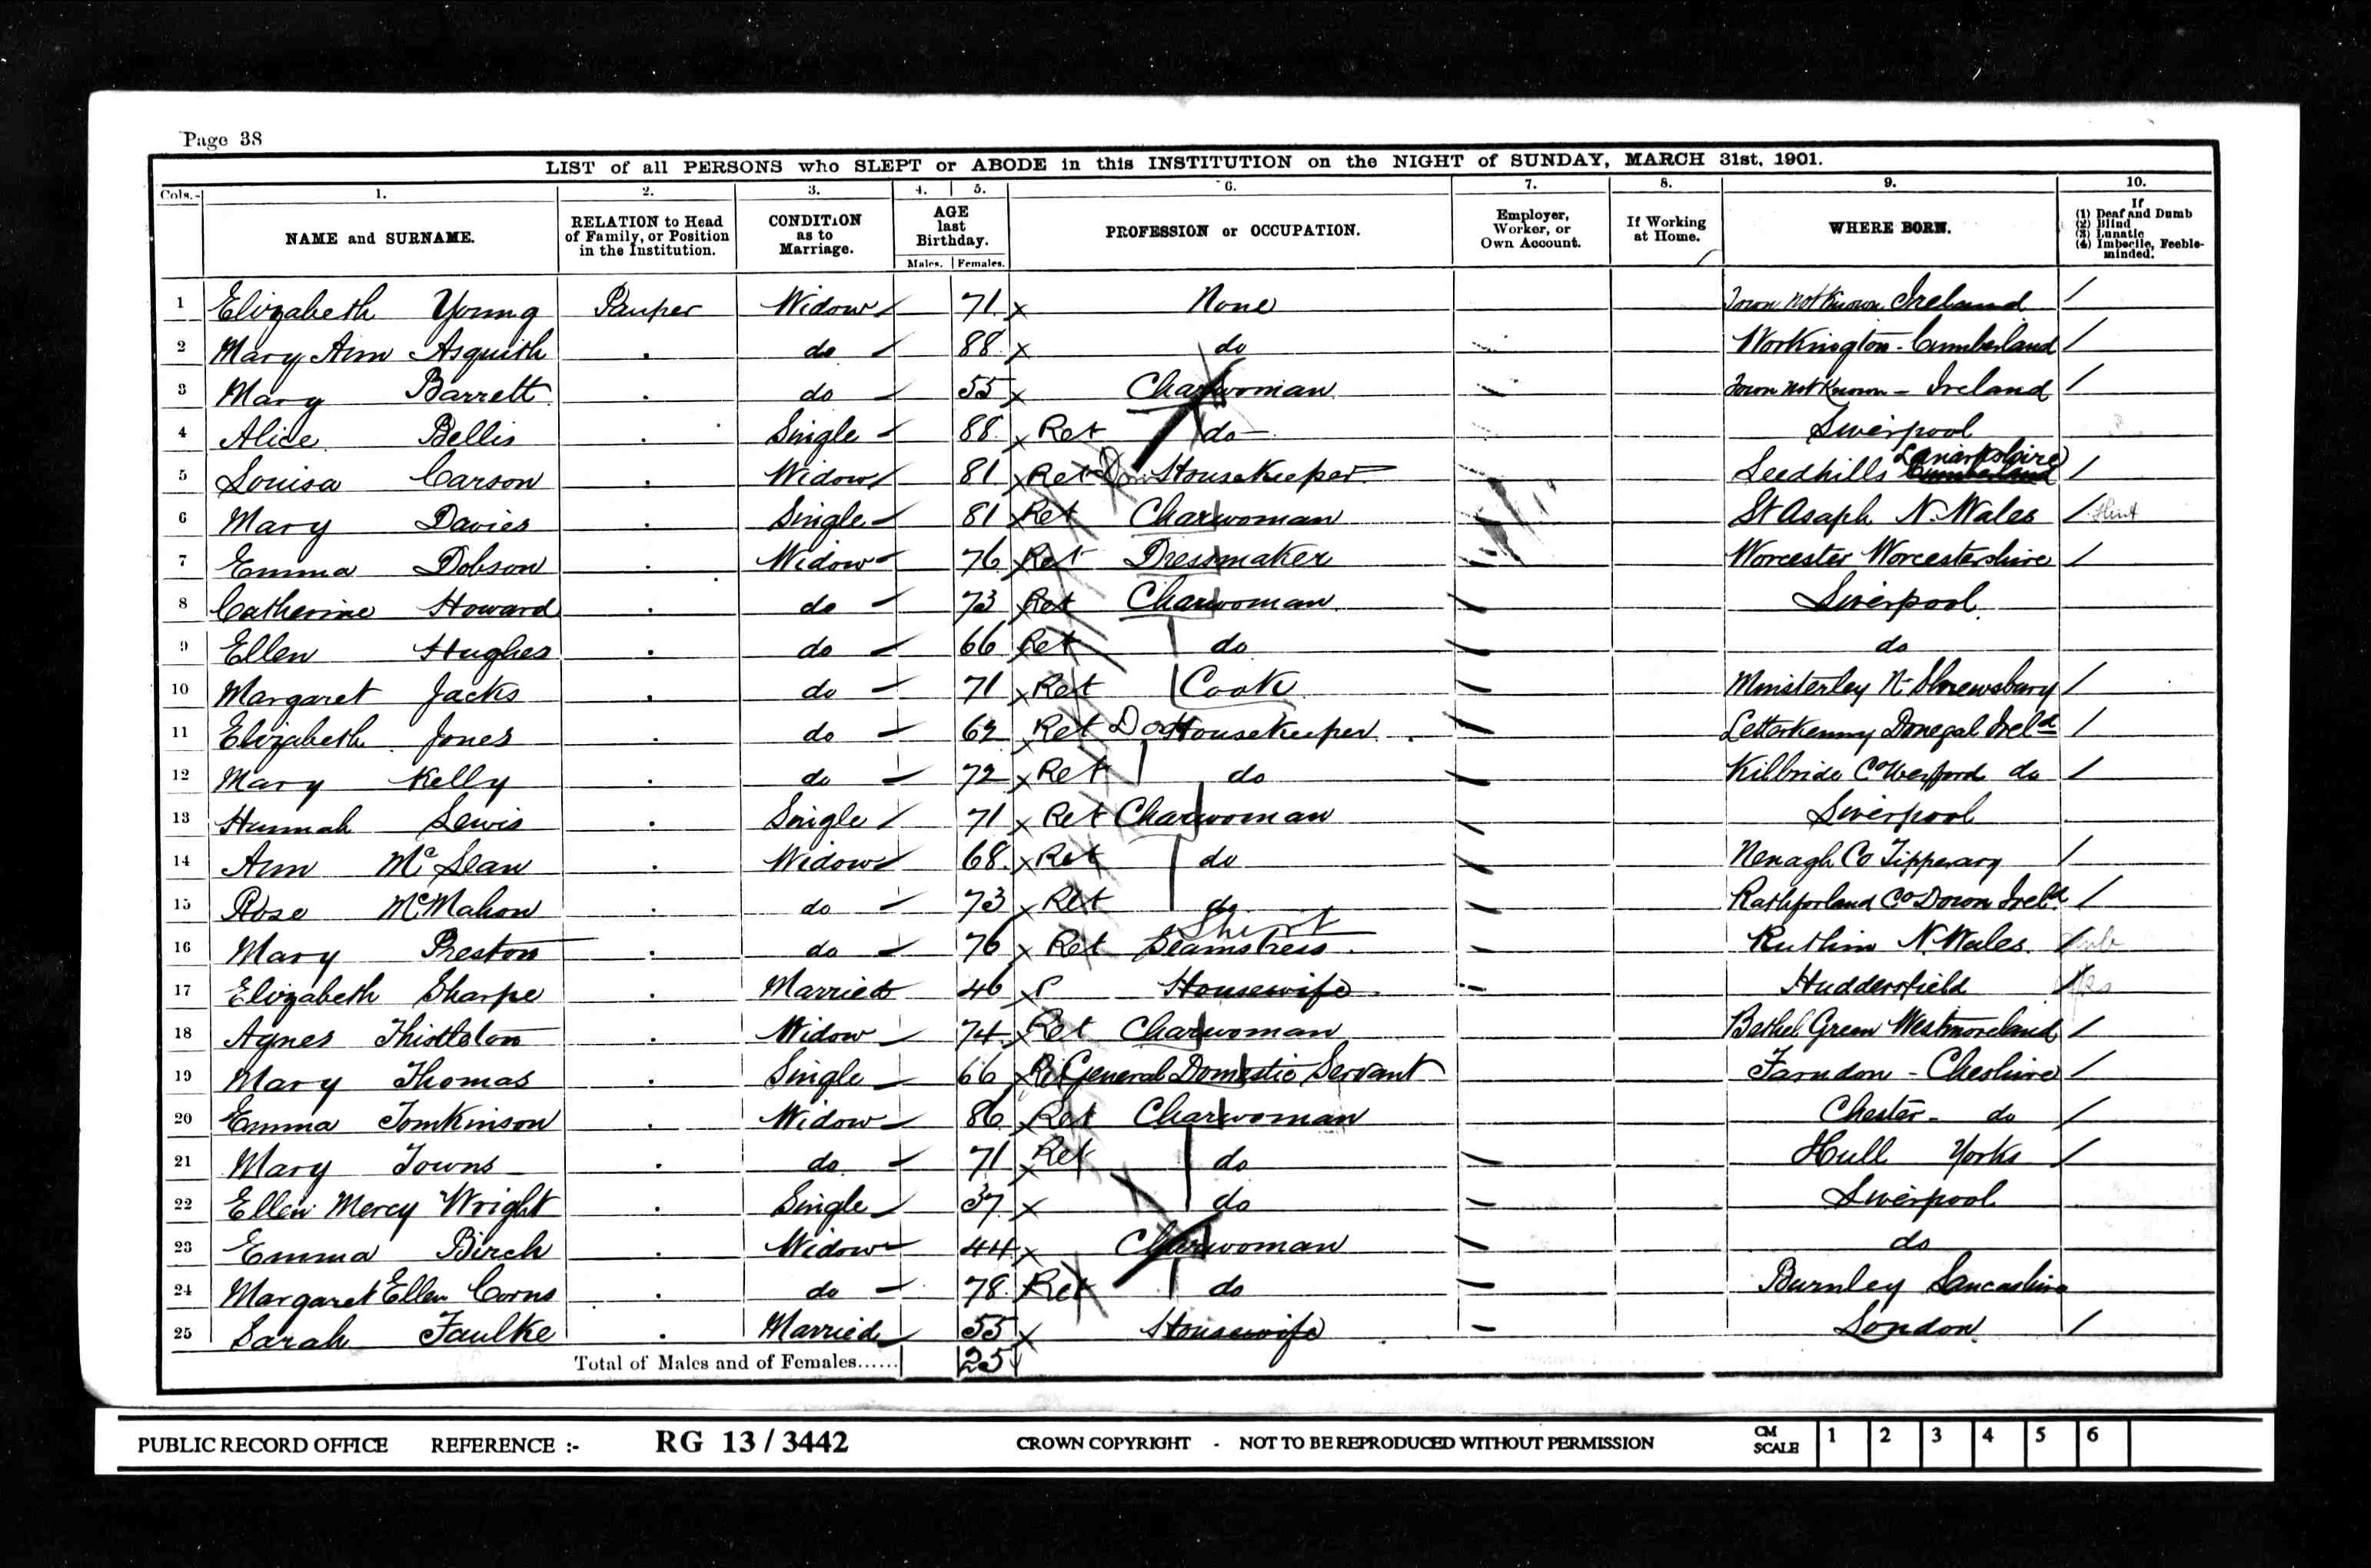 Page 38
LIST of all PERSONS who SLEPT or ABODE in this INSTITUTION on the NIGHT of SUNDAY, MARCH 31st, 1901.
Cols. 1. 2. 3. 4. 5. 6. 7. 8. 9. 10.
NAME and SURNAME. RELATION to Head of Family, or Position in the Institution. CONDITION as to Marriage. AGE last Birthday. Males. Females. PROFESSION or OCCUPATION. Employer, Worker, or Own Account. If Working at Home. WHERE BORN. If (1) Deaf and Dumb (2) Blind (3) Lunatic (4) Imbecile, Feeble-minded.
1 Elizabeth Young Pauper Widow 71 x None Town not Known Ireland
2 Mary Ann Asquith . do 88 x do Workington - Cumberland
3 Mary Barrett . do 55 x Charwoman Town not Known - Ireland
4 Alice Bellis . Single 88 x Ret do Liverpool
5 Louisa Carson . Widow 81 x Ret Dom Housekeeper Leedhills Lanarkshire Cumberland
6 Mary Davies . Single 81 x Ret Charwoman St Asaph N. Wales Flint
7 Emma Dobson . Widow 76 x Ret Dressmaker Worcester Worcestershire
8 Catherine Howard . do 73 x Ret Charwoman Liverpool
9 Ellen Hughes . do 66 Ret do do
10 Margaret Jacks . do 71 x Ret Cook Minsterley Nr Shrewsbury
11 Elizabeth Jones . do 62 x Ret Dom Housekeeper Letterkenny Donegal Ireld
12 Mary Kelly . do 72 x Ret do Killbride Co Wexford do
13 Hannah Lewis . Single 71 x Ret Charwoman Liverpool
14 Ann McLean . Widow 68 x Ret do Nenagh Co Tipperary
15 Rose McMahon . do 73 x Ret do Rathforland Co Down Ireld
16 Mary Preston . do 76 x Ret Shirt Seamstress Ruthin N. Wales
17 Elizabeth Sharpe . Married 46 x Housewife Huddersfield
18 Agnes Thistleton . Widow 74 x Ret Charwoman Bethel Green Westmoreland
19 Mary Thomas . Single 66 x Ret General Domestic Servant Farndon - Cheshire
20 Emma Tomkinson . Widow 86 x Ret Charwoman Chester - do
21 Mary Towns . do 71 x Ret do Hull Yorks
22 Ellen Mercy Wright . Single 37 x do Liverpool
23 Emma Birch . Widow 44 x Charwoman do
24 Margaret Ellen Corns . do 78 Ret do Burnley Lancashire
25 Sarah Faulke . Married 55 x Housewife London
Total of Males and of Females...... 25
PUBLIC RECORD OFFICE REFERENCE :- RG 13 / 3442 CROWN COPYRIGHT - NOT TO BE REPRODUCED WITHOUT PERMISSION CM SCALE 1 2 3 4 5 6